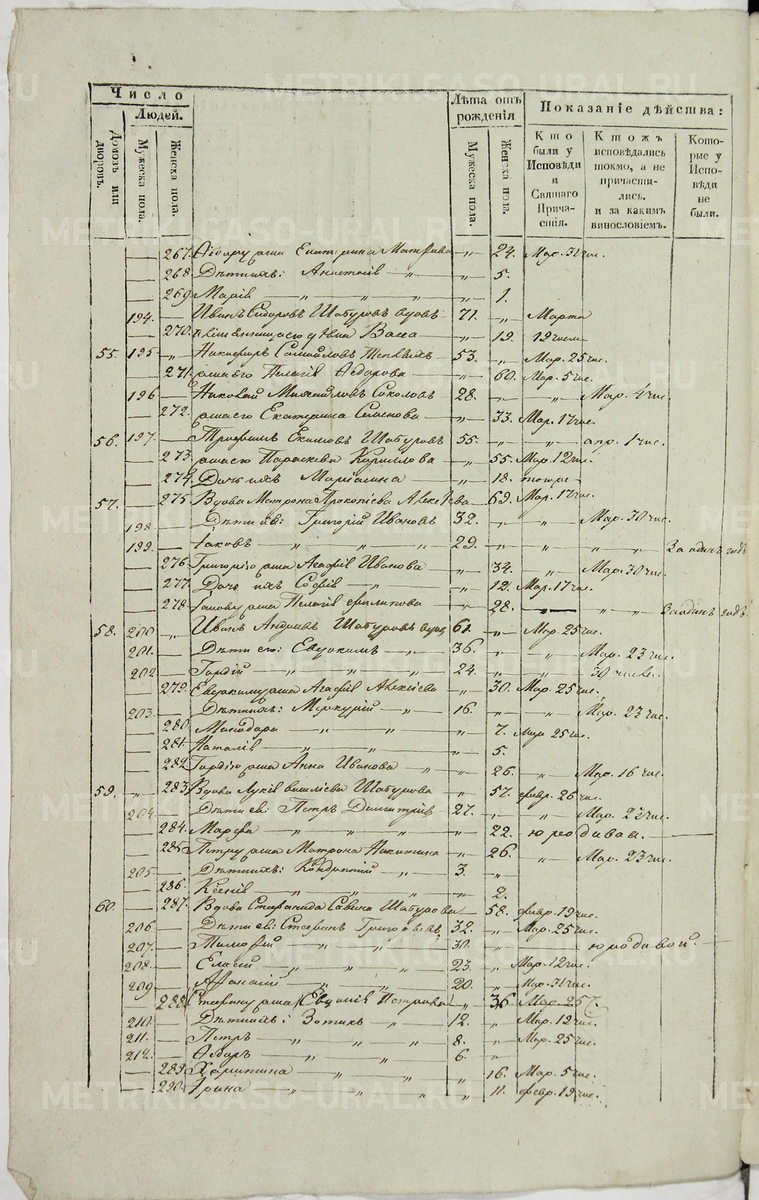 Число
Людей.
Домовъ или дворовъ.
Мужеска пола.
Женска пола.
Лѣта отъ рожденія
Мужеска пола.
Женска пола.
Показаніе дѣйства:
Кто были у Исповѣди и Святаго Прича-стія.
Ктожъ исповѣдались токмо, а не причасти-лись. и за какимъ винословіемъ.
Кото-рые у Испо-вѣди не были.
267. Ѳедору жена Екатерина Матѳиева — „ — 24. Мар. 31 чис.
268. Дѣти ихъ: Анастасія — „ — 5.
269. Марія „ „ „ „ — 1.
194. Иванъ Сидоровъ Шабуровъ вдовъ — 71. „ Марта
270. Васса — „ — 19. 19 числ.
55. 195 — „ — 53. „ Мар. 25 чис.
271. жена его Пелагія Ѳедорова — „ — 60. Мар. 5 чис.
196 — Николай Михайловъ Соколовъ 28. „ „ Мар. 4 чис.
272. жена его Екатерина Семенова — „ — 33. Мар. 17 чис.
56. 197. Трофимъ Екимовъ Шабуровъ 55. „ „ апр. 1 чис.
273. жена его Параскева Кириллова — „ — 55. Мар. 12 чис.
274. Дочь ихъ Маріамна — „ — 18.
57. 275. Вдова Матрона Прокопіева — 69. Мар. 17 чис.
198 — Дѣти ея: Григорій Ивановъ 32. „ „ Мар. 30 чис.
199. Іаковъ „ „ „ 29. „ „ „ За одинъ годъ
276. Григорію жена Агафія Иванова — „ — 34. „ Мар. 30 чис.
277. Дочь ихъ Софія — „ — 12. Мар. 17 чис.
278. Іакову жена Пелагія Филипова — „ — 28. „ „ За одинъ годъ.
58. 200. „ Иванъ Андреевъ Шабуровъ вдовъ 61. „ Мар. 25 чис.
201. Дѣти его: Евдокимъ „ 36. „ „ Мар. 23 чис.
202. Гордій „ „ „ 24. „ „ 30 числ.
279. Евдокиму жена Агафія Алексіева „ 30. Мар. 25 чис.
203. Дѣти ихъ: Меркурій „ 16. „ „ Мар. 23 чис.
280. Минодора „ „ „ 7. Мар. 25 чис.
281. Наталія „ „ „ 5.
282. Гордію жена Анна Иванова — „ — 26. „ Мар. 16 чис.
59. „ 283. Вдова Лукія Шабурова „ 57. февр. 26 чис.
204. Дѣти ея: Петръ Димитріевъ 27. „ „ Мар. 23 чис.
284. Марфа „ „ „ „ 22. юродивая.
285. Петру жена Матрона Никитина „ 26. „ Мар. 23 чис.
205. Дѣти ихъ: Кондратій „ 3. „
286. Ксенія „ „ „ 2.
60. 287. Вдова Стефанида Савина Шабурова — 58. февр. 19 чис.
206. Дѣти ея: Стефанъ Григоріевъ 32. „ Мар. 25 чис.
207. Тимофей „ „ 30. „ юродивой.
208. Елисей „ „ 23. „ Мар. 12 чис.
209. Афанасій „ „ 20. „ Мар. 31 чис.
288. Стефану жена Евдокія Петрова „ 36. Мар. 25
210. Дѣти ихъ: Зотикъ „ „ 12. „ Мар. 19 чис.
211. Петръ „ „ „ 8. „ Мар. 25 чис.
212. Ѳедоръ „ „ „ 6. „
289. Харитина „ „ „ 16. Мар. 5 чис.
290. Ирина „ „ „ „ 11. февр. 19 чис.
METRIKI.GASO-URAL.RU